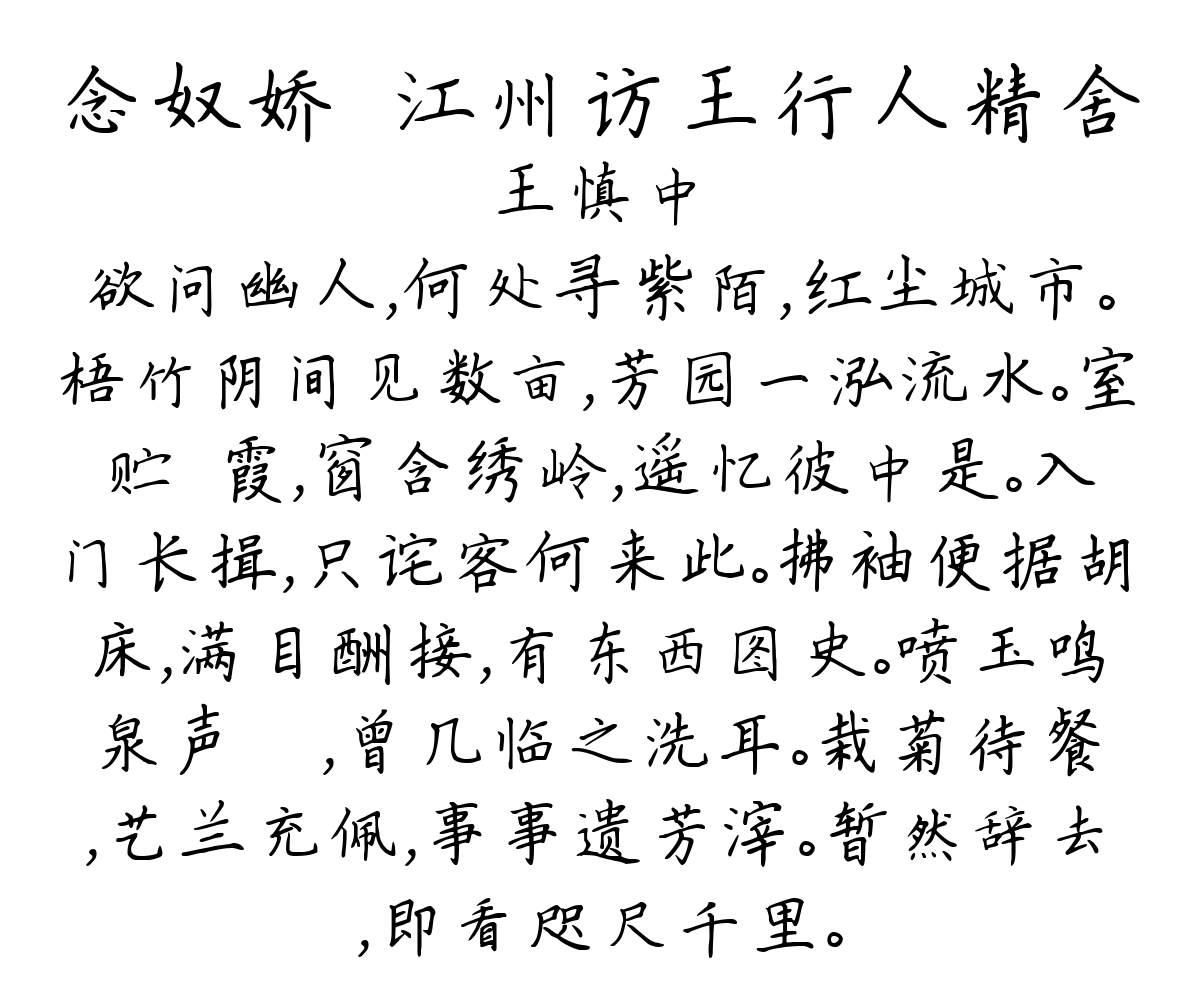 念奴娇 江州访王行人精舍
王慎中
欲问幽人,何处寻紫陌,红尘城市。
梧竹阴间见数亩,芳园一泓流水。室
贮 霞,窗含绣岭,遥忆彼中是。入
门长揖,只诧客何来此。拂袖便据胡
床,满目酬接,有东西图史。喷玉鸣
泉声 ,曾几临之洗耳。栽菊待餐
,艺兰充佩,事事遗芳滓。暂然辞去
,即看咫尺千里。